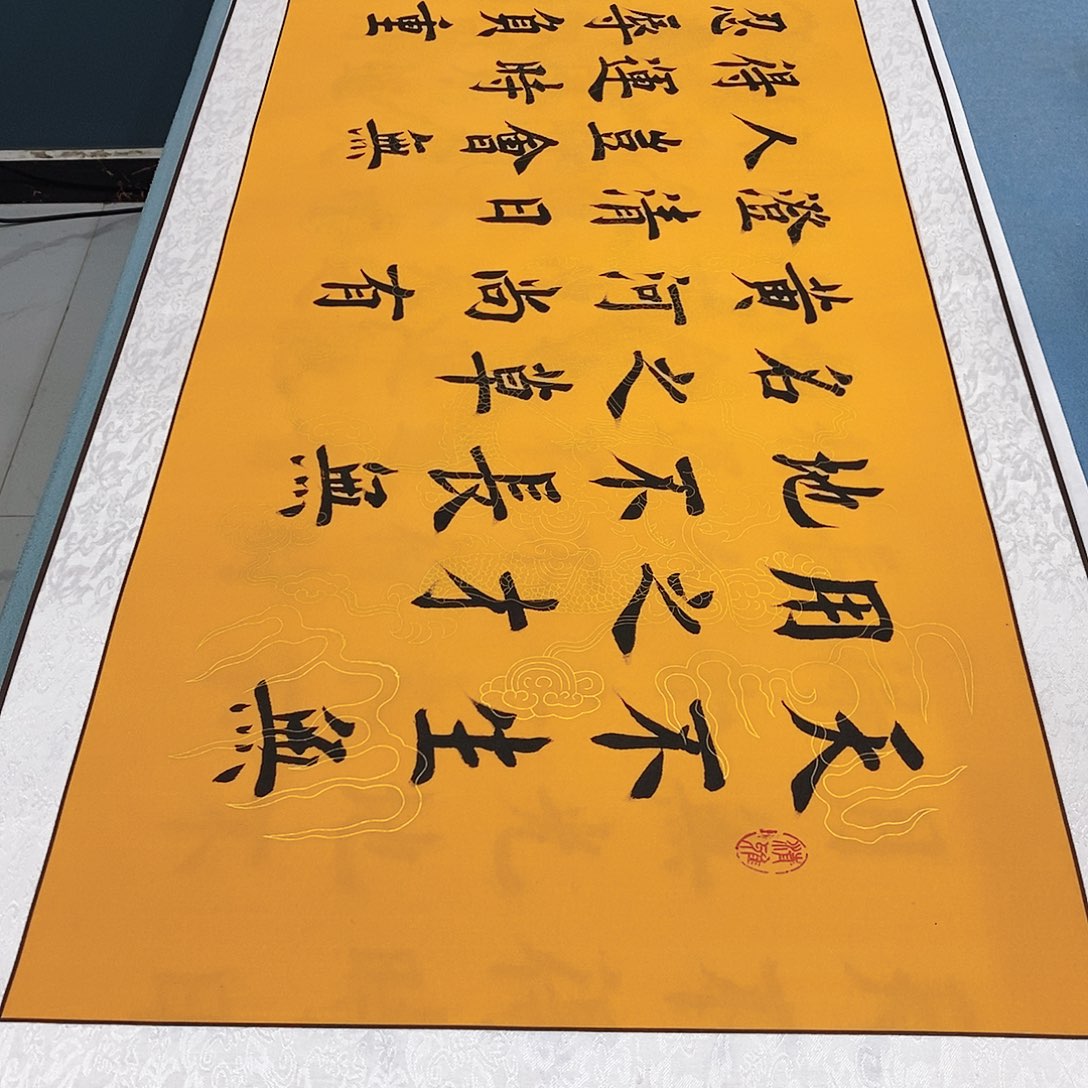 天不生無
用之才
地不長無
名之草
黄河尚有
澄清日
人豈會無
得運時
忍辱負重